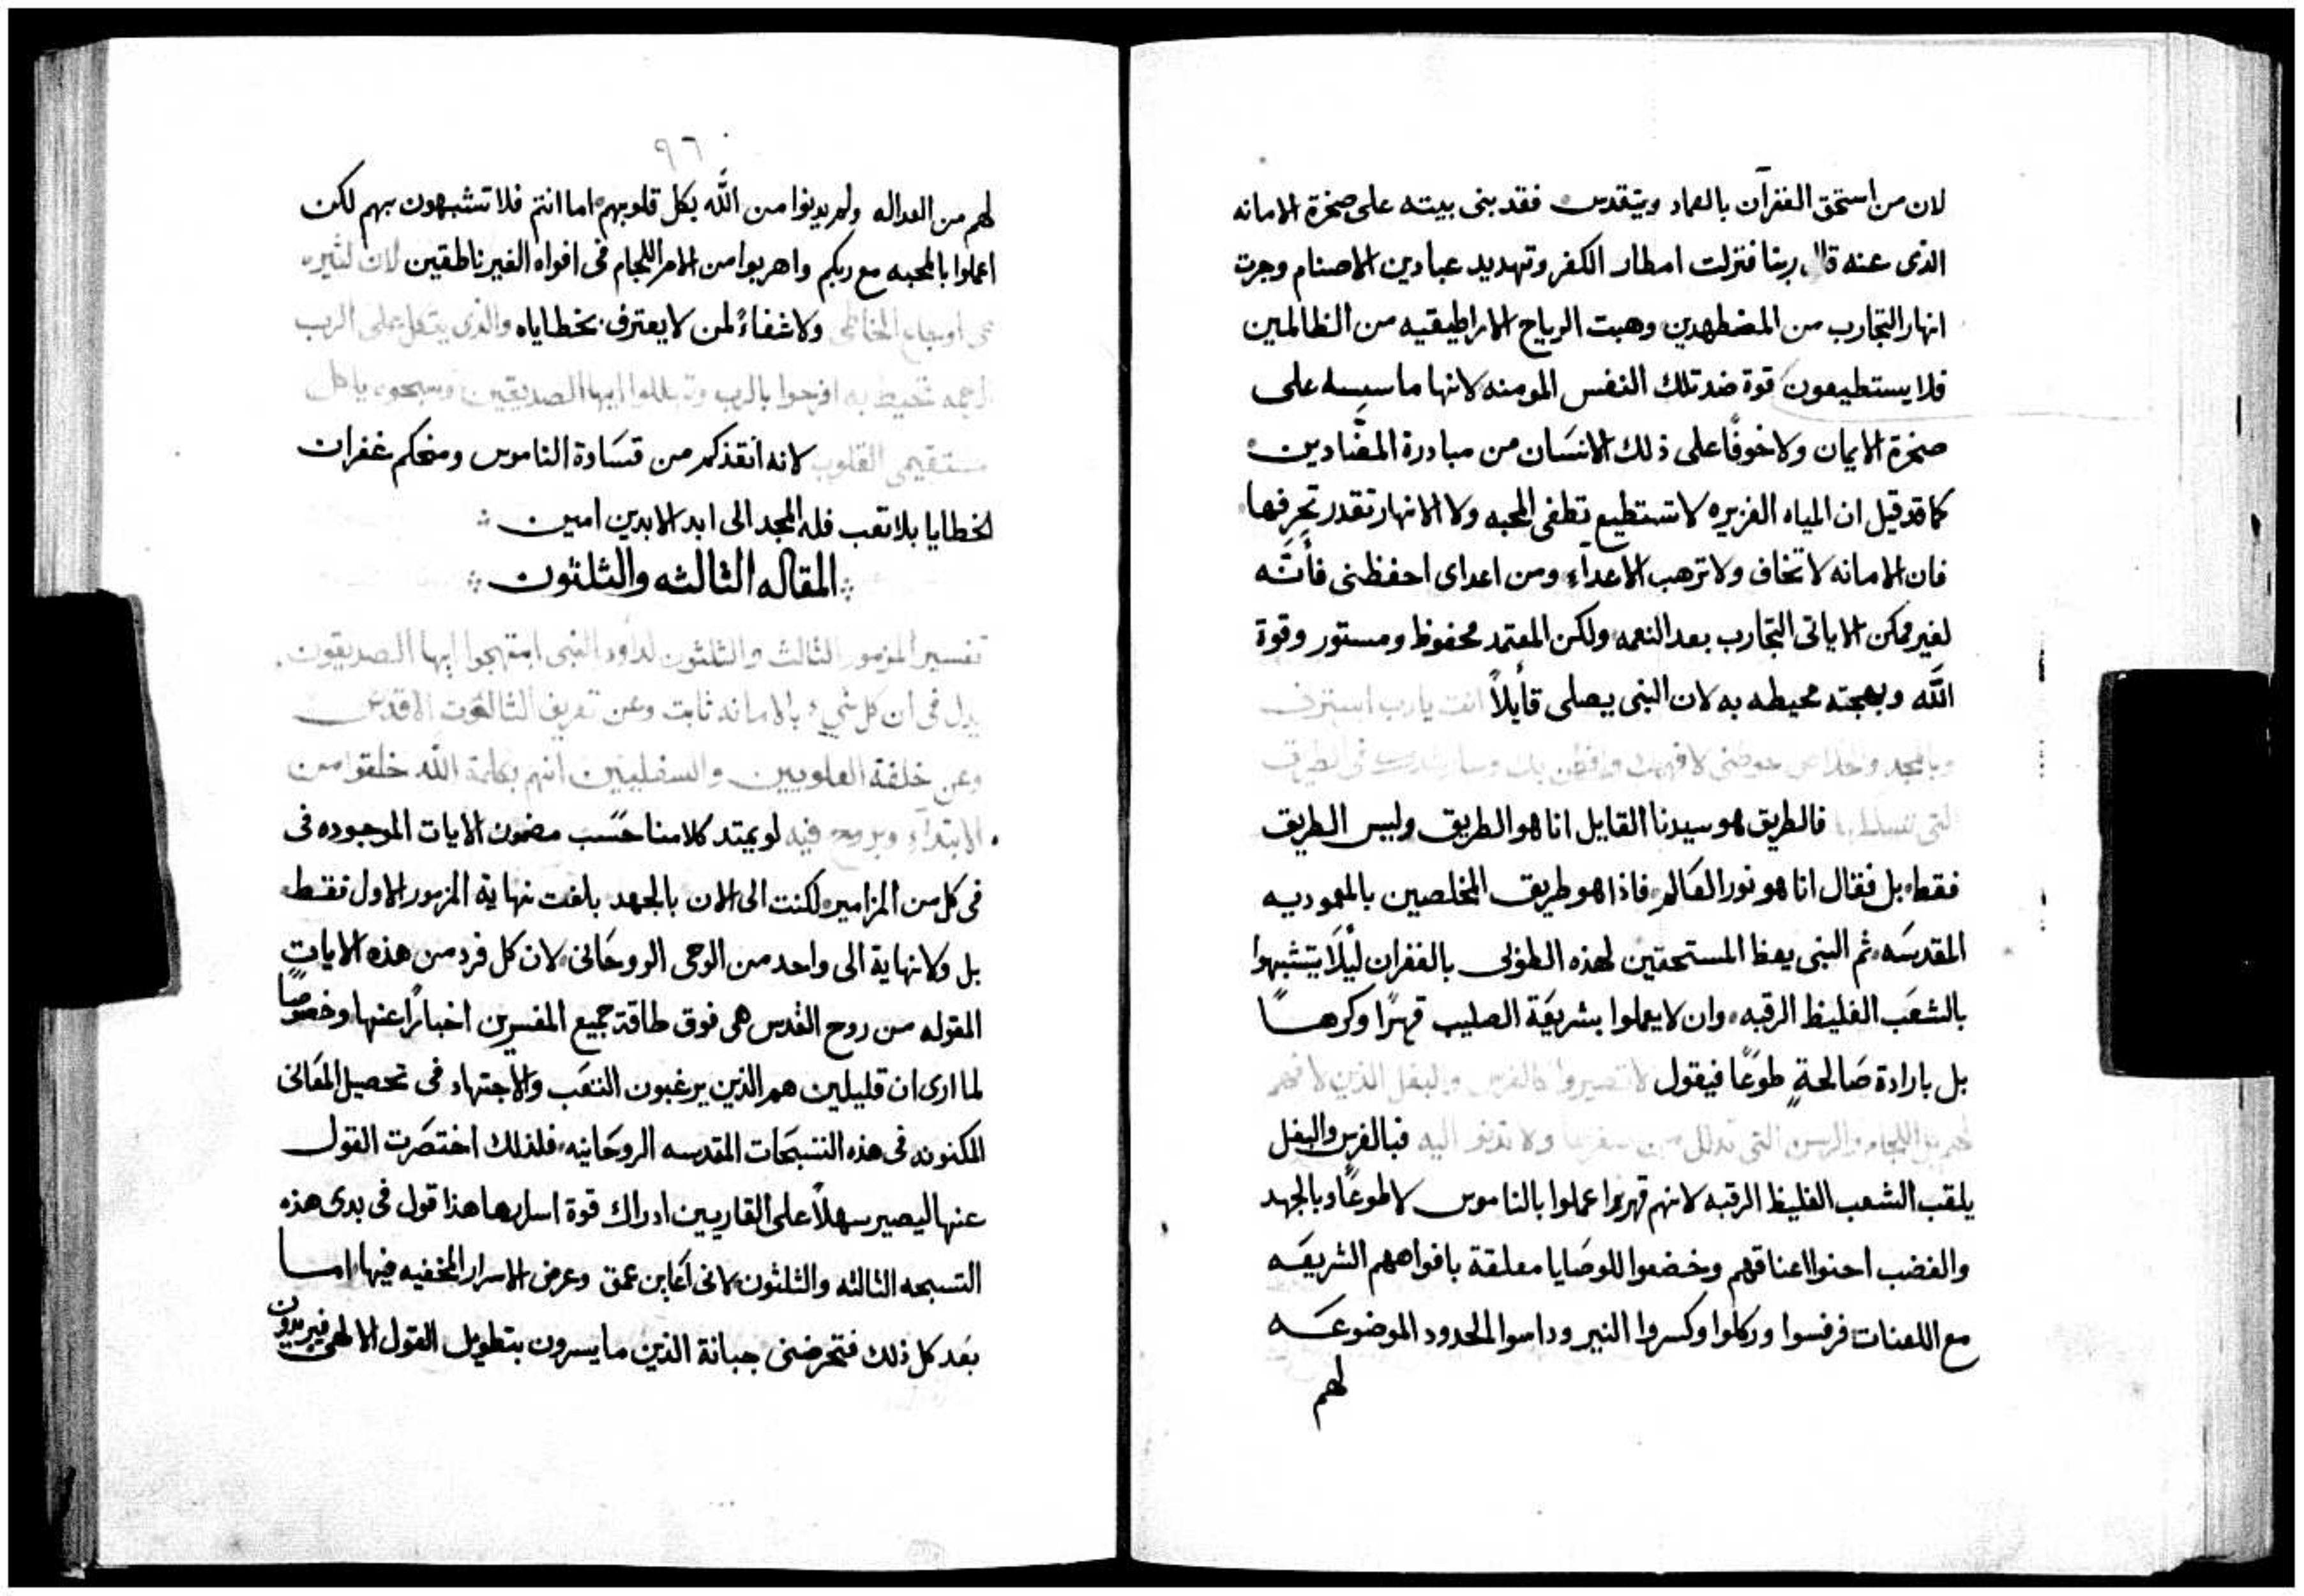 لان من استحق الغفران بالعماد ويتقدس فقد بنى بيته على صخرة الامانه
الذى عنه قال ربنا فنزلت امطار الكفر وتهديد عبادين الاصنام وجرت
انهار التجارب من المضطهدين وهبت الرياح الاراطيقيه من الظالمين
فلا يستطيعون قوة ضد تلك النفس المومنه لانها ماسسه على
صخرة الايمان ولا خوفًا على ذلك الانسان من مبادرة المضادين
كما قد قيل ان المياه الغزيره لا تستطيع تطفى المحبه ولا الانهار تقدر تجرفها
فان الامانه لا تخاف ولا ترهب الاعداء ومن اعداى احفظنى فأنَّه
لغير ممكن الاياتى التجارب بعد النعمه ولكن المعتمد محفوظ ومستور وقوة
اللّه وبهجته محيطه به لان النبى يصلى قأيلاً انت يارب استرنى
فى الطريق
التى تسلك بها فالطريق هو سيدنا القايل انا هو الطريق وليس الطريق
فقط بل فقال انا هو نور العالم فاذا هو طريق المخلصين بالمعموديه
المقدسه ثم النبى يعظ المستحقين لهذه الطوبى بالغفران ليًلا يتشبهوا
بالشعَب الغليظ الرقبه وان لا يعملوا بشريعَة الصليب قهرًا وكرهًا
بل بارادة صَالحةٍ طوعًا فيقول لا تصيروا كالفرس والبغل الذين لا فهم
لهم ولا تدنو اليه فبالفرس والبغل
يلقب الشعب الغليظ الرقبه لانهم قهرًا عملوا بالناموس لا طوعًا وبالجهد
والغضب احنوا اعناقهم وخضعوا للوصَايا معلقة بافواههم الشريعَه
مع اللعنات فرفسوا وركلوا وكسروا النير وداسوا الحدود الموضوعَه
لهم
٩٦
لهم من العداله ولم يدنوا من اللّه بكل قلوبهم اما انتم فلا تتشبهون بهم لكن
اعملوا بالمحبه مع ربكم واهربوا من الامر اللجام فى افواه الغير ناطقين لان كثيره
هى اوجاع الخاطى ولا شفاءً لمن لا يعترف بخطاياه والذى يتكل على الرب
الرحمه تحيط به افرحوا بالرب وتهللوا ايها الصديقين وسبحوه يا كل
مستقيمى القلوب لانه انقذكم من قسَاوة الناموس ومنحكم غفران
الخطايا بلا تعب فله المجد الى ابد الابدين امين
المقاله الثالثه والثلثون
تفسير المزمور الثالث والثلثون لداود النبى ابتهجوا ايها الصديقون
يدل فى ان كل شىء بالامانه ثابت وعن تعريف الثالوث الاقدس
وعن خلقة العلويين والسفليين انهم بكلمة اللّه خلقوا من
الابتداء وبروح فيه لو يمتد كلامنا حسَب مضمون الايات الموجوده فى
فى كل من المزامير لكنت الى الان بالجهد بلغت نهاية المزمور الاول فقط
بل ولا نهاية الى واحد من الوحى الروحَانى لان كل فرد من هذه الايات
المقوله من روح القدس هى فوق طاقة جميع المفسرين اخبارًا عنها وخصوصًا
لما ارى ان قليلين هم الذين يرغبون التعَب والاجتهاد فى تحصيل المعَانى
المكنونه فى هذه التسبحَات المقدسه الروحَانيه فلذلك اختصَرت القول
عنها ليصير سهلاً على القاريين ادراك قوة اسرارها هذا قول فى بدى هذه
التسبحه الثالثه والثلثون لانى اعَاين عمق وعرض الاسرار المخفيه فيها اما
بعَد كل ذلك فتحرضنى جبانة الذين ما يسرون بتطويل القول الالهى فيريدون